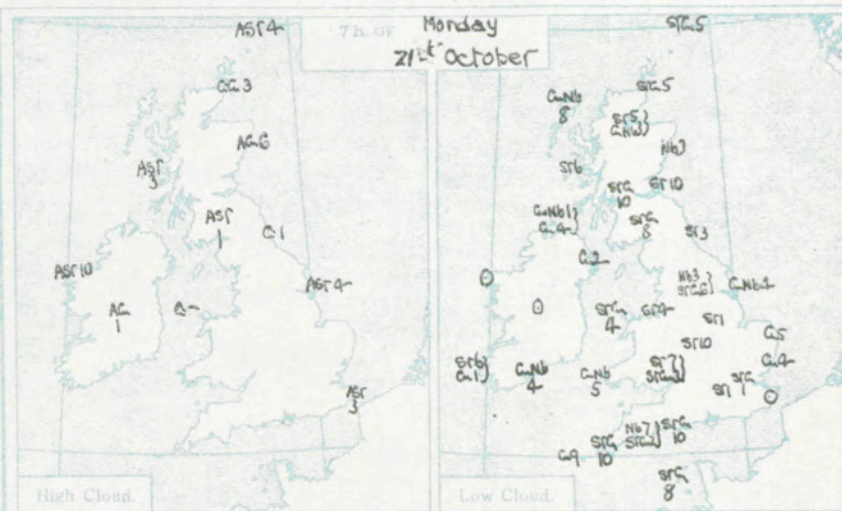 7h. OF Monday
21st October
ASt 4
ACu 6
ASt
3
ASt
1
ASt 10
ACu
1
ASt 4
ASt
3
High Cloud.
StCu 5
StCu 5
CuNb
8
St 5
CuNb 3
Nb 3
St 6
StCu
10
St 10
CuNb 1
Cu 4
StCu
8
St 3
Cu 2
Nb 3
StCu 6
CuNb 1
StCu
4
St 4
St 1
Cu 5
St 10
Cu 4
St 6
Cu 1
CuNb
4
CuNb
5
St 7
StCu 3
St 1
StCu
1
Nb 7
StCu 2
StCu
10
StCu
10
Cu 9
StCu
8
Low Cloud.